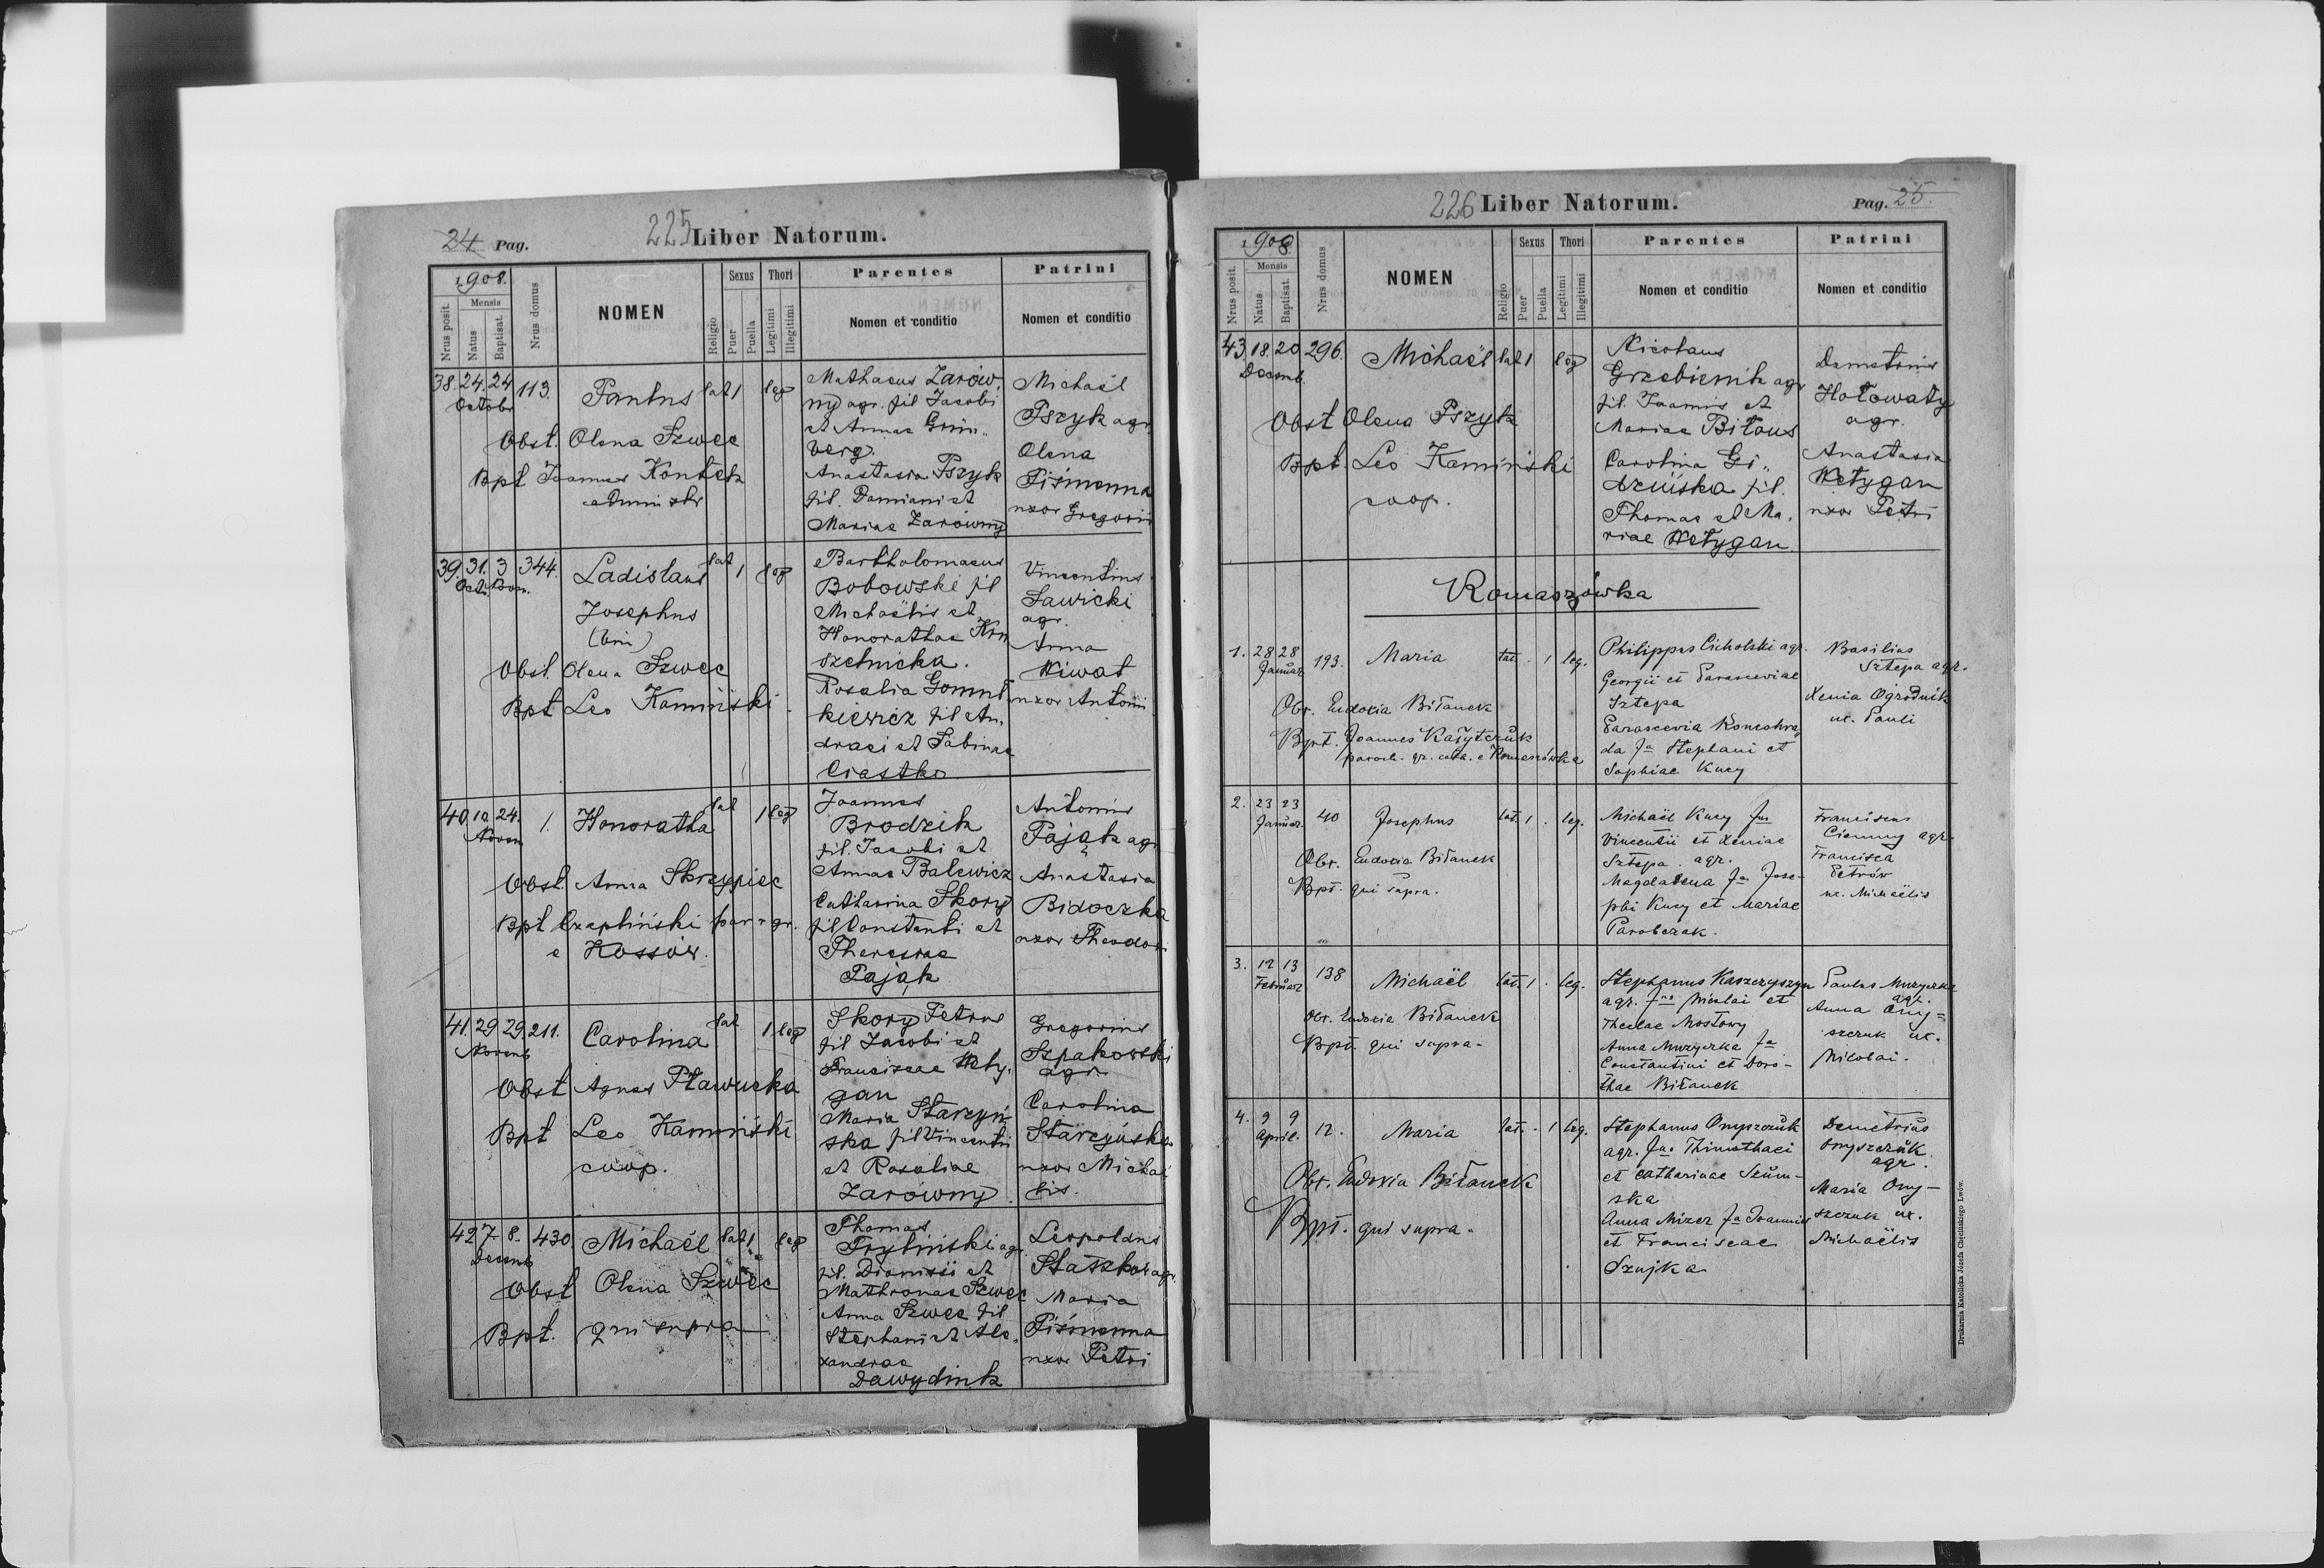 24 Pag.
225 Liber Natorum.
1908.
Nrus posit.
Mensis
Natus
Baptisat.
Nrus domus
NOMEN
Religio
Sexus
Puer
Puella
Thori
Legitimi
Illegitimi
Parentes
Nomen et conditio
Patrini
Nomen et conditio
38. 24. 24 113. lat 1 leg
Octobr
Obst. Olena Szwec
Bpt Joannes
Mathaeus Zarów,
ny agr. fil Jacobi
et Annae Grün„
berg.
Anastasia Pszyk
fil. Damiani et
Mariae Zarówny
Michaël
Pszyk agr.
Olena
Piśmenna
uxor Gregorii
39. 31. 3 344. Ladislaus lat 1 leg
Oct. Novem.
Josephus
(bini)
Obst. Olena Szwec
Bpt Leo Kamiński.
Bartholomaeus
Bobowski fil
Michaëlis et
Honorathae
Rosalia
kiewicz fil An„
dreae et Sabinae
Ciastko
Vincentius
Sawicki
agr.
Anna
Kiwat
uxor Antoni
40. 10. 24. 1. Honoratha lat 1 leg
Novem
Obst. Anna Skrzypiec
Bpt Czapliński par. gr.
e Kossów.
Joannes
Brodzik
fil. Jacobi et
Annae Balewicz
Catharina Skory
fil Constanti et
Theresiae
Pająk
Antonius
Pająk agr
Anastasia
Bidoczka
uxor Theodori
41. 29 29. 211. Carolina lat 1 leg
Novemb
Obst Agnes
Bpt Leo Kamiński
coop.
Skory Petrus
fil Jacobi et
Franciscae Wety„
gan
Maria Starzyń
ska fil Vincentii
et Rosaliae
Zarówny.
Gregorius
Szpakowski
agr.
Carolina
Starzyńska
uxor Michaë
lis.
42 7. 8. 430 Michaël lat 1. leg
Decemb
Obst Olena Szwec
Bpt. qui supra
Thomas
Tryliński agr.
fil. Dionisii et
Mathronae Szwec
Anna Szwec fil
Stephani et Ale„
xandrae
Dawydiuk
Leopoldus
Staszkow agr.
Maria
Piśmenna
uxor Petri
226 Liber Natorum.
Pag. 25.
1908.
Nrus posit.
Mensis
Natus
Baptisat.
Nrus domus
NOMEN
Religio
Sexus
Puer
Puella
Thori
Legitimi
Illegitimi
Parentes
Nomen et conditio
Patrini
Nomen et conditio
43. 18. 20 296. Michaël lat 1 leg
Decemb.
Obst Olena Pszyk
Bpt. Leo Kamiński
coop.
Nicolaus
Grzebienik agr
fil. Joannis et
Mariae Biłous
Carolina Gi„
dzińska fil.
Thomae et Ma,
riae Wetygan.
Demetrius
Hołowaty
agr.
Anastasia
Wetygan
uxor Petri
Romaszówka
1. 28 28 193. Maria lat. . 1 leg.
Januar
Obs. Eudoxia Biłanek
Bpt. Joannes Kałytczuk
paroch. gr. cath. e Romaszówka
Philippus Cicholski agr.
Georgii et Parasceviae
Sztepa
Parascevia Koncohra
da fa Stephani et
Sophiae Kucy
Basilius
Sztepa agr.
Xenia Ogrodnik
ux. Pauli
2. 23 23 40 Josephus lat. 1 . leg.
Januar.
Obs. Eudoxia Biłanek
Bpt. qui supra.
Michaël Kucy fus
Vincentii et Xeniae
Sztepa. agr.
Magdalena fa Jose-
phi Kucy et Mariae
Parobczak.
Franciscus
Ciemny agr.
Francisca
Petrów
ux. Michaëlis
3. 12 13 138 Michaël lat. 1 . leg.
Februar
Obs. Eudoxia Biłanek
Bpt. qui supra.
Stephanus Kaszczyszyn
agr. fus Nicolai et
Theclae Mostowy
Anna Muzyczka fa
Constantini et Doro-
theae Biłanek
Paulus Muzyczka
agr.
Anna Ony=
szczuk ux.
Nicolai.
4. 9 9 12. Maria lat. . 1 leg.
April.
Obs. Eudoxia Biłanek
Bpt. qui supra.
Stephanus Onyszczuk
agr. fus Thimothaei
et Catharinae Szum-
ska
Anna Mizer fa Joannis
et Franciscae
Szujka
Demetrius
Onyszczuk
agr.
Maria Ony-
szczuk ux.
Michaëlis
Drukarnia Katolicka Józefa Chęcińskiego Lwów.